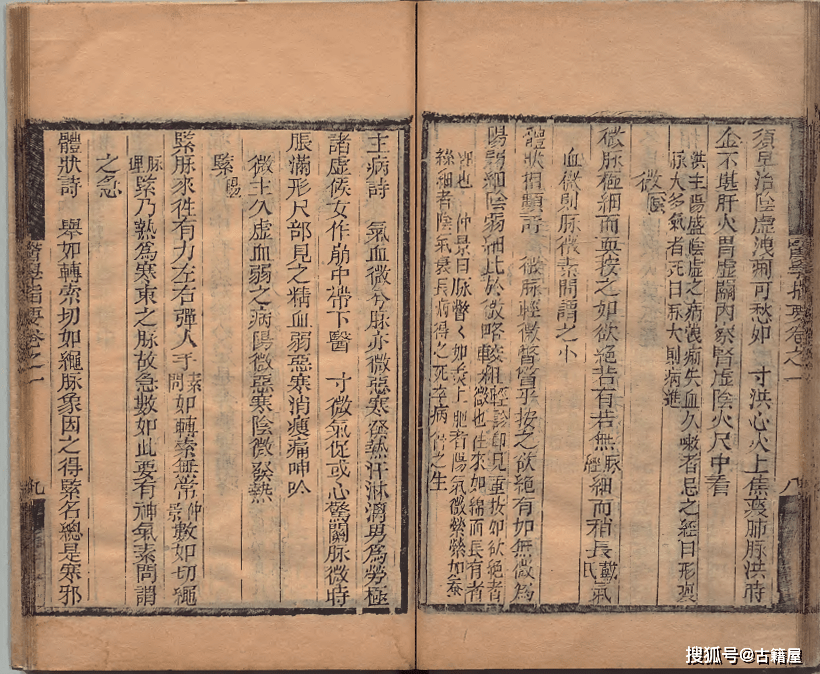 須早治陰虛洩痢可愁如　寸洪心火上焦炎肺脉洪時
金不堪肝火胃虛關內察腎虛陰火尺中看
洪主陽盛陰虛之病洩痢失血久嗽者忌之經曰形瘦
脉大多氣者死曰脉大則病進
微陰
微脉極細而耎按之如欲絕若有若無脉經細而稍長戴氏氣
血微則脉微素問謂之小
體狀相類詩　微脉輕微瞥瞥乎按之欲絕有如無微為
陽弱細陰弱細比於微略較粗輕診即見重按如欲絕者微也徃來如綿而長有者
細也　仲景曰脉瞥瞥如羹上肥者陽氣微縈縈如蚕
絲細者陰氣衰長病得之死卒病得之生
醫學指要卷之一
八
主病詩　氣血微兮脉亦微惡寒發熱汗淋漓男為勞極
諸虛候女作崩中帶下醫　寸微氣促或心驚關脉微時
脹滿形尺部見之精血弱惡寒消癉痛呻吟
微主久虛血弱之病陽微惡寒陰微發熱
緊陽
緊脉來徃有力左右彈人手素問如轉索無常仲景數如切繩
脉經緊乃熱為寒束之脉故急數如此要有神氣素問謂
之急
體狀詩　舉如轉索切如繩脉象因之得緊名總是寒邪
醫學指要卷之一
九
搜狐号@古籍屋